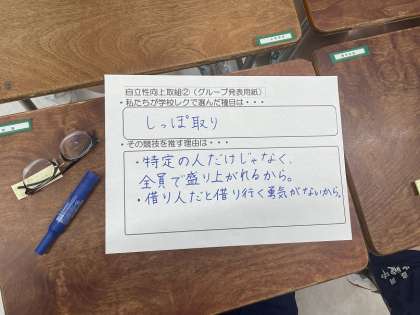 自立性向上取組②（グループ発表用紙）
・私たちが学校レクで選んだ種目は・・・
しっぽ取り
・その競技を推す理由は・・・
・特定の人だけじゃなく、
全員で盛り上がれるから。
・借り人だと借り行く勇気がないから。